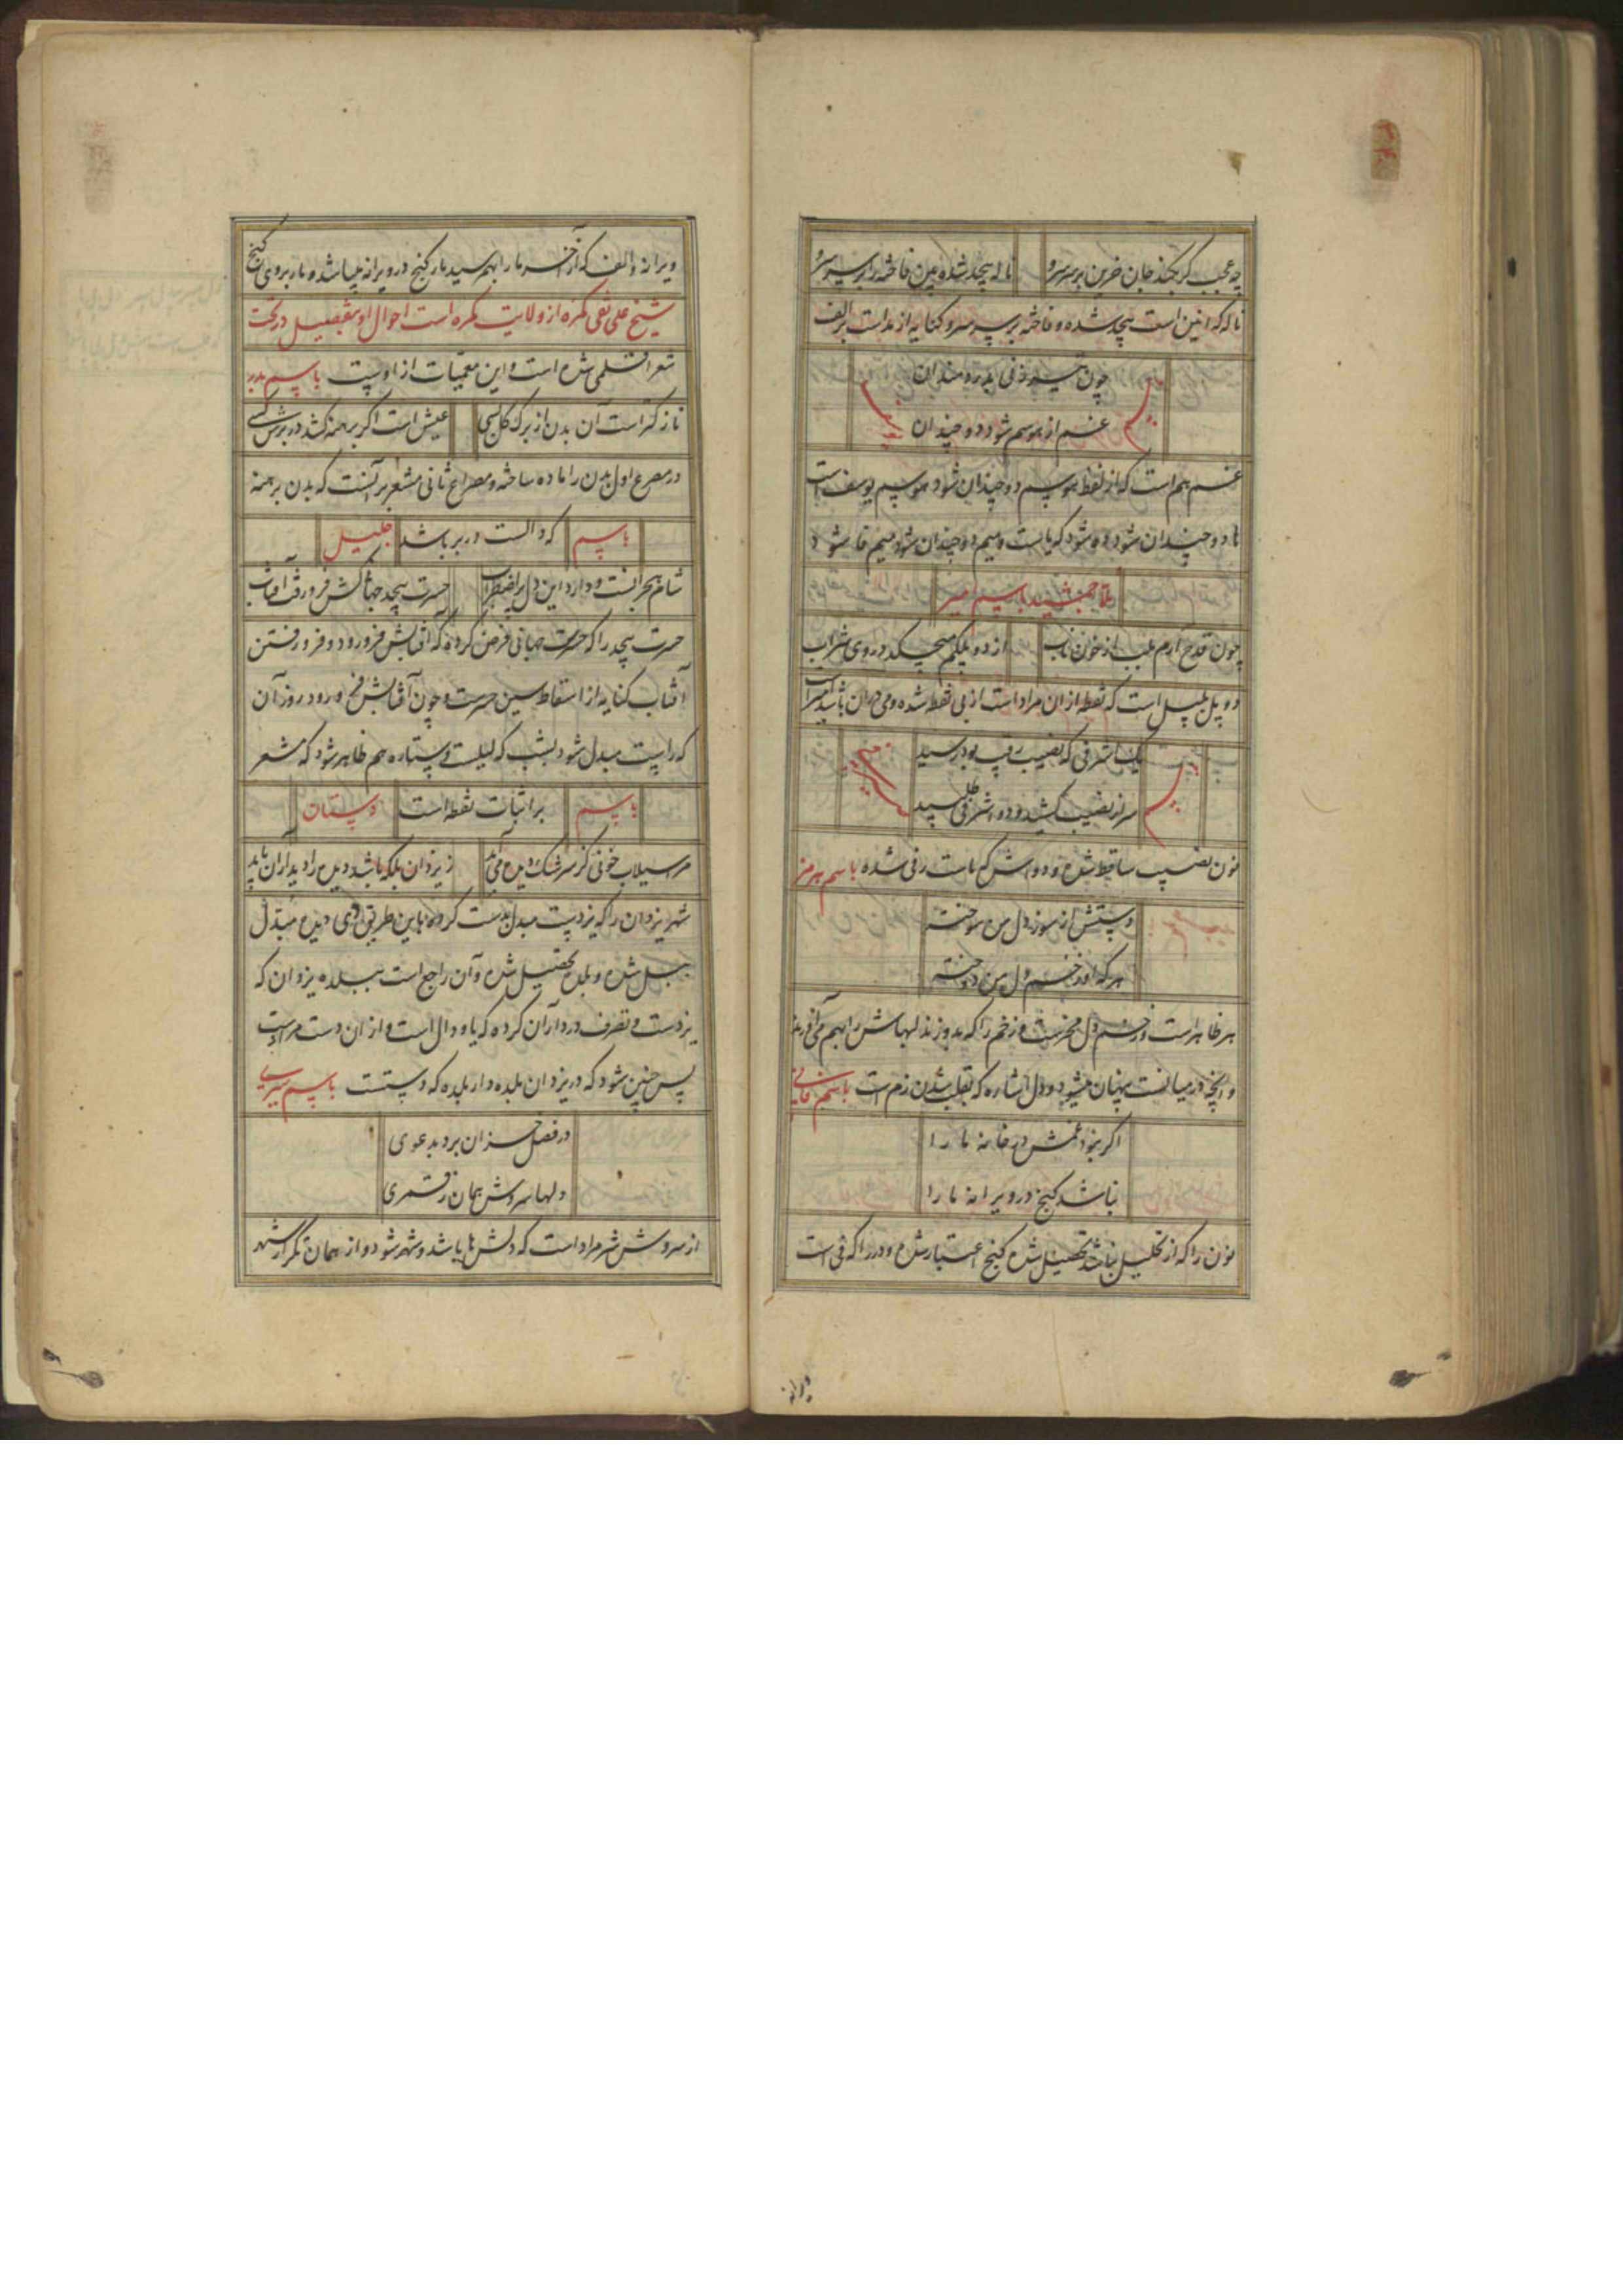 چه عجب گر بکند جان حزین بر سر سرو
ناله پیچد شده بین فاخته را بر سر سرو
ناله که انین است بیحد شده و فاخته بر سر سرو کنایه از مد است بر الف
چون تیر زنی بدردمندان
غم از هوسم شود دو چندان
غم هم است که از لفظ هوسم دو چندان شود هوسم یوسف است
ها دو چندان شود ده شود که یا است و میم دو چندان شود میم فا شود
ملا جمشید باسم امیر
چون قدح آرم بلب از خون ناب
از دو پلکم میچکد در وی شراب
دو پل است که نقطه ازان مراد است از بی نقطه شده و می دران باشد
باسم
یک اشرفی که نصیب رقیب بود رسید
سر از نصیب کشید و دو اشرفی طلبید
نون نصیب ساقط شده و دو اش که تاست رفی شده باسم هرمز
دستش از سوز دل من سوخته
هر که او زخم دل من دوخته
هر ظاهر است و زخم دل مخرست و زخم را که بدوزند لبهاش را بهم می آورند
و آنچه در میانست پنهان میشود و دل اشاره که بقلب شدن زم است باسم فانی
اگر نبود غمش در خانه ما را
نباشد گنج در ویرانه ما را
نون را که از تحلیل نباشد تحصیل شده گنج اعتبار شده و در را که فی است
ویرانه
ویرانه و الف که از آخر ما را بهم رسید مار گنج در ویرانه پیدا شده مار بر وی گنج
شیخ علی نقی کمره از ولایت کمره است احوال او بتفصیل در تحت
شعرا قلمی شده است و این معمیات از اوست باسم بدر
نازکتر است آن بدن از برگ گل بسی
عیش است اگر برهنه کشد در برش کسی
در مصرع اول بدن را ماده ساخته و مصراع ثانی مشعر بر آنست که بدن برهنه
باسم
که دالست در بر باشد
جلیل
شام هجرانست و دارد این دل پر اضطراب
حسرت بیحد جهانکش فرو رفت آفتاب
حسرت بیحد را که حسرت جهانی فرض کرده که آفتابش فرو رود و فرو رفتن
آفتاب کنایه از اسقاط سین حسرت و چون آفتابش فرو رود روز آن
که راست مبدل شود بشب که لیلست و ستاره هم ظاهر شود که مشعر
باسم
بر اثبات نقطه است
دستان
مر سیلاب خونی کز سرشک دیده می آید
ز یزدان بلکه باشد دیده را دیدار آن باید
شهر یزدان را که یزدست مبدل بدست کرده باین طریق که دیده مبدل
ببل شده و بلده تحصیل شده و آن راجع است ببلده یزدان که
یزدست و تصرف در دارآن کرده که یا و دال است و از ان دست مراد است
پس چنین شود که در یزدان بلده دار بلده که دستست باسم
در فصل خزان برد بدعوی
دلها سروش همان ز قمری
از سروش شر مراد است که دلش ها باشد و شهر شود و از همان تکرار شهر